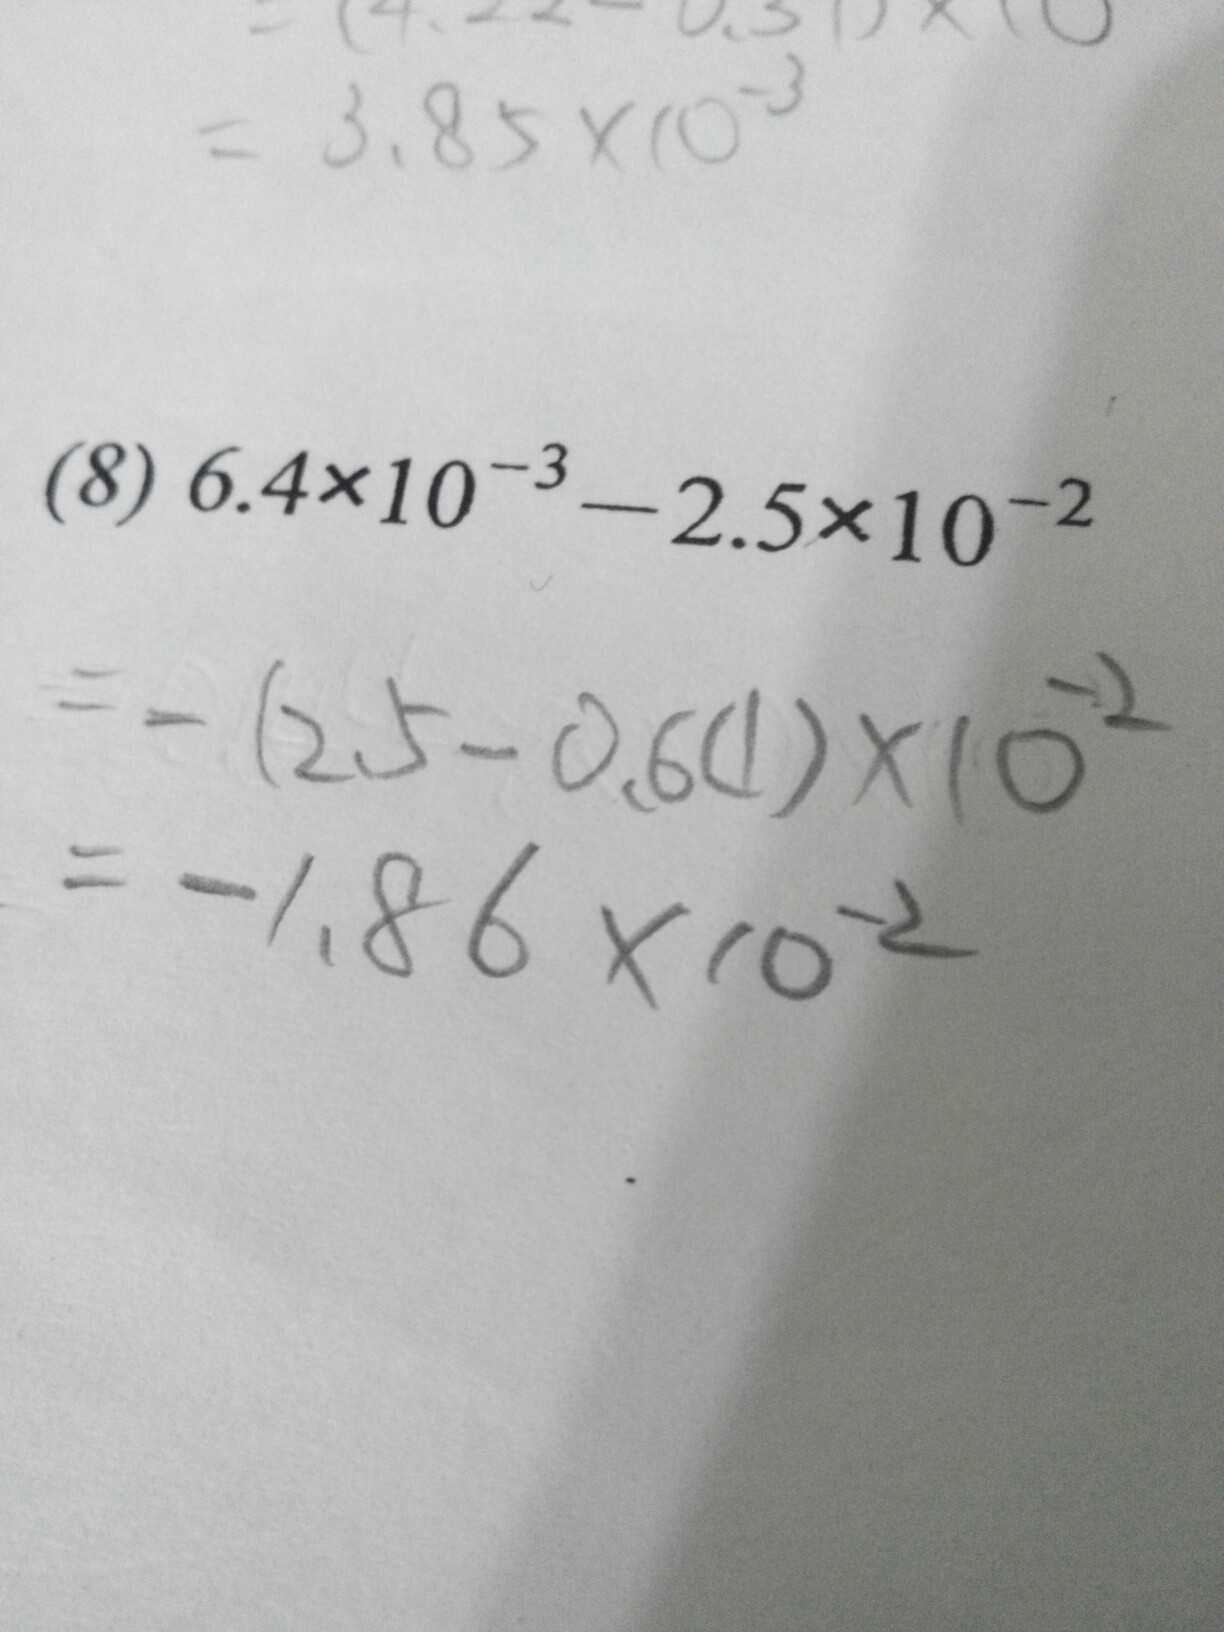 = (4.22 - 0.37) × 10
= 3.85 × 10⁻³
(8) 6.4×10⁻³ — 2.5×10⁻²
= - (2.5 - 0.64) × 10⁻²
= - 1.86 × 10⁻²